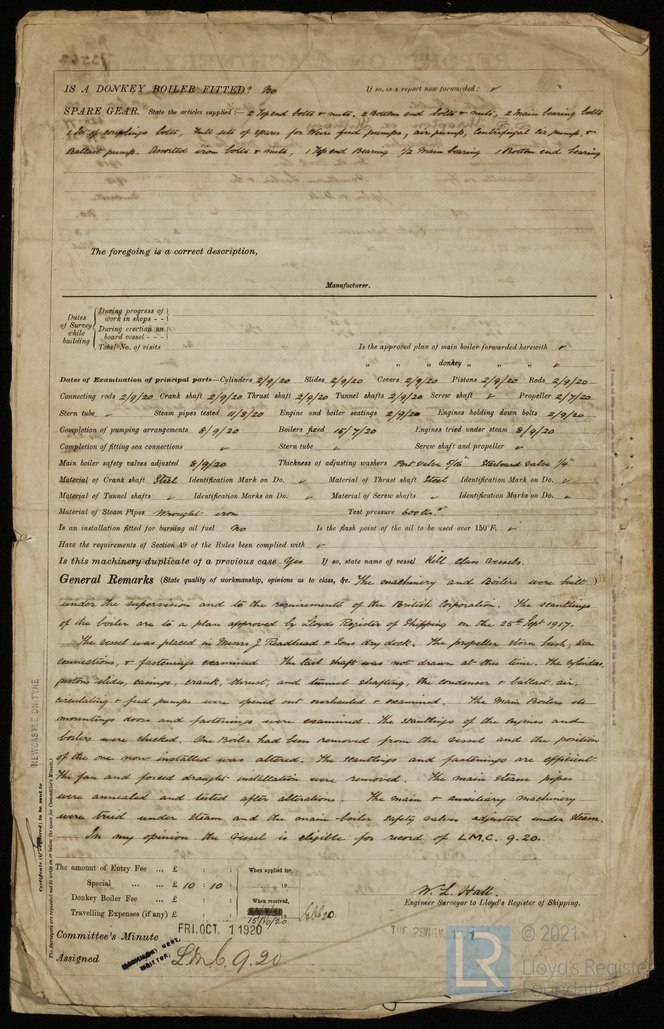 IS A DONKEY BOILER FITTED? No If so, is a report now forwarded? ✓
SPARE GEAR. State the articles supplied:— 2 Top end bolts & nuts. 2 Bottom end bolts & nuts, 2 Main bearing bolts
1 set of couplings bolts, Full sets of spares for Weirs feed pumps, air pump, Centrifugal cir pump, &
Ballast pump. Assorted iron bolts & nuts, 1 Top end Bearing 1/2 Main bearing 1 Bottom end bearing
The foregoing is a correct description,
Manufacturer.
Dates of Survey while building
During progress of work in shops - -
During erection on board vessel - - -
Total No. of visits
Is the approved plan of main boiler forwarded herewith ✓
" " " donkey " " " ✓
Dates of Examination of principal parts—Cylinders 2/9/20 Slides 2/9/20 Covers 2/9/20 Pistons 2/9/20 Rods 2/9/20
Connecting rods 2/9/20 Crank shaft 2/9/20 Thrust shaft 2/9/20 Tunnel shafts 2/9/20 Screw shaft ✓ Propeller 2/7/20
Stern tube ✓ Steam pipes tested 11/8/20 Engine and boiler seatings 2/9/20 Engines holding down bolts 2/9/20
Completion of pumping arrangements 8/9/20 Boilers fixed 15/7/20 Engines tried under steam 8/9/20
Completion of fitting sea connections ✓ Stern tube ✓ Screw shaft and propeller ✓
Main boiler safety valves adjusted 8/9/20 Thickness of adjusting washers Port valve 5/16" Starboard valve 1/4"
Material of Crank shaft Steel Identification Mark on Do. ✓ Material of Thrust shaft Steel Identification Mark on Do. ✓
Material of Tunnel shafts ✓ Identification Marks on Do. ✓ Material of Screw shafts ✓ Identification Marks on Do. ✓
Material of Steam Pipes Wrought iron Test pressure 600 lbs
Is an installation fitted for burning oil fuel No Is the flash point of the oil to be used over 150°F. ✓
Have the requirements of Section 49 of the Rules been complied with ✓
Is this machinery duplicate of a previous case Yes If so, state name of vessel Kill class vessels.
General Remarks (State quality of workmanship, opinions as to class, &c. The machinery and Boilers were built
under the supervision and to the requirements of the British Corporation. The scantlings
of the boiler are to a plan approved by Lloyds Register of Shipping on the 25th Sept 1917.
The vessel was placed in Messrs J. Readhead & Sons dry dock. The propeller stern bush, sea
connections, & fastenings examined The tail shaft was not drawn at this time. The cylinders,
pistons slides, casings, crank, thrust, and tunnel shafting, the condenser & ballast, air,
circulating & feed pumps were opened out overhauled & examined. The Main Boilers its
mountings doors and fastenings were examined. The scantlings of the engines and
boilers were checked. One Boiler had been removed from the vessel and the position
of the one now installed was altered. The scantlings and fastenings are efficient
The fan and forced draught installation were removed. The main steam pipes
were annealed and tested after alterations. The main & auxiliary machinery
were tried under steam and the main boiler safety valves adjusted under steam.
In my opinion the vessel is eligible for record of L.M.C. 9.20.
NEWCASTLE ON TYNE
Certificate (if required) to be sent to
The Surveyors are requested not to write on or below the space for Committee's Minute.
The amount of Entry Fee ... £ : : When applied for
Special ... ... £ 10 : 10 : 19
Donkey Boiler Fee ... £ : : When received,
Travelling Expenses (if any) £ : : 15/10/20
W. L. Hall.
Engineer Surveyor to Lloyd's Register of Shipping.
Committee's Minute FRI. OCT 1 1920
Assigned L.M.C. 9.20
WRITTEN
© 2021
LR
Lloyd's Register
Foundation